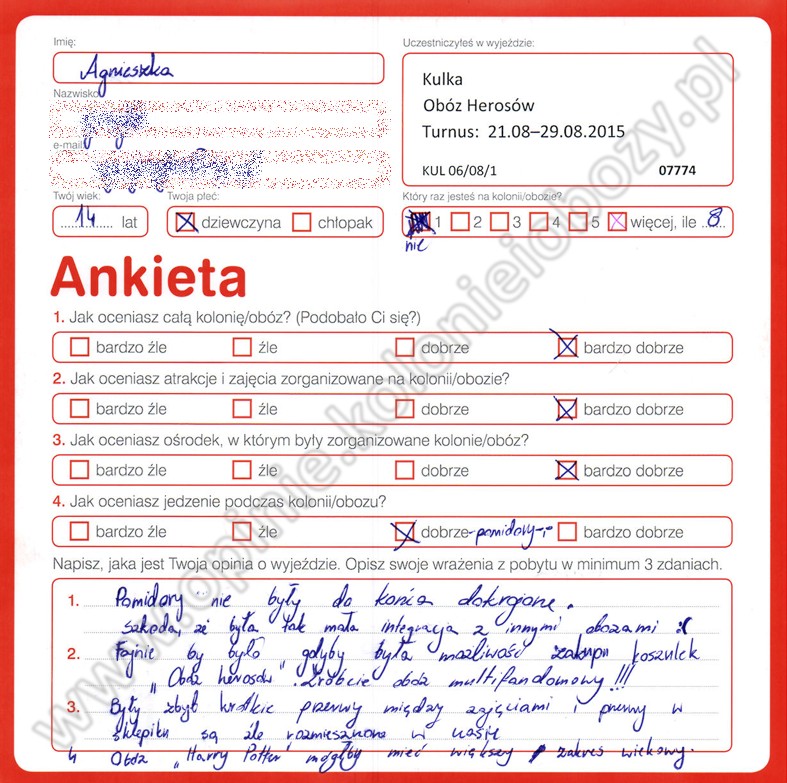 Imię:
Agnieszka
Nazwisko
e-mail:
Twój wiek:
14 lat
Twoja płeć:
dziewczyna chłopak
Uczestniczyłeś w wyjeździe:
Kulka
Obóz Herosów
Turnus: 21.08–29.08.2015
KUL 06/08/1 07774
Który raz jesteś na kolonii/obozie?
1 2 3 4 5 więcej, ile 8
nie
Ankieta
1. Jak oceniasz całą kolonię/obóz? (Podobało Ci się?)
bardzo źle źle dobrze bardzo dobrze
2. Jak oceniasz atrakcje i zajęcia zorganizowane na kolonii/obozie?
bardzo źle źle dobrze bardzo dobrze
3. Jak oceniasz ośrodek, w którym były zorganizowane kolonie/obóz?
bardzo źle źle dobrze bardzo dobrze
4. Jak oceniasz jedzenie podczas kolonii/obozu?
bardzo źle źle dobrze -pomidory-, bardzo dobrze
Napisz, jaka jest Twoja opinia o wyjeździe. Opisz swoje wrażenia z pobytu w minimum 3 zdaniach.
1. Pomidory nie były do końca
szkoda, że była tak mała integracja z innymi obozami :(
2. Fajnie by było gdyby była możliwość zakupu koszulek
"Obóz herosów". Zróbcie obóz multifandomowy !!!
3. Były zbyt krótkie przerwy między zajęciami i przerwy w
sklepiku są źle rozmieszczone w czasie
4 Obóz "Harry Potter" mógłby mieć większy zakres wiekowy.
www.opinie.kolonieiobozy.pl